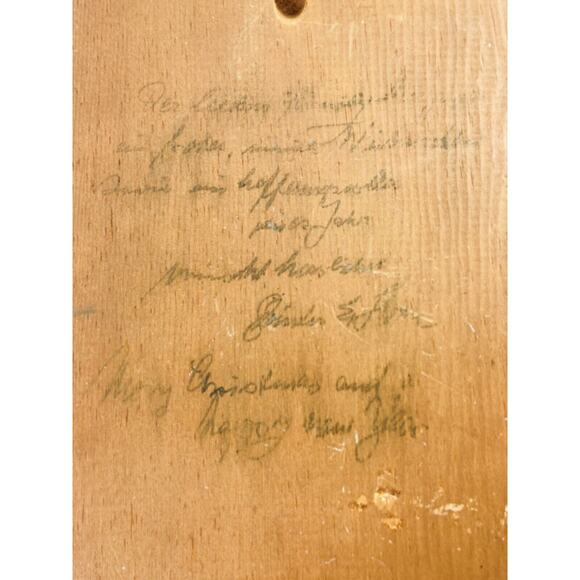 Der lieben
ein frohes, Weihnachten
sowie ein hoffnungsvolles
neues Jahr
wünscht herzlich
Günter
Merry Christmas and a
happy new Year